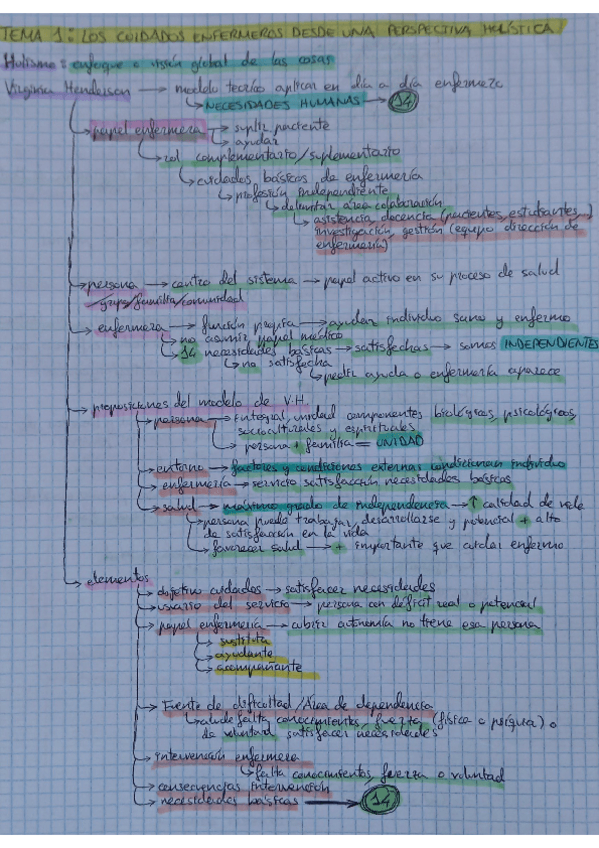 TEMA 1: LOS CUIDADOS ENFERMEROS DESDE UNA PERSPECTIVA HOLÍSTICA
Holismo: enfoque o visión global de las cosas
Virginia Henderson → modelo teórico aplicar en día a día enfermera
↳ NECESIDADES HUMANAS → 14
→ papel enfermera → suplir paciente
→ ayudar
↳ rol complementario/suplementario
↳ cuidados básicos de enfermería
↳ profesión independiente
↳ delimitar área colaboración
↳ asistencia, docencia (pacientes, estudiantes...)
investigación, gestión (equipo dirección de
enfermería)
→ persona → centro del sistema → papel activo en su proceso de salud
grupo/familia/comunidad
→ enfermera → función propia → ayudar individuo sano y enfermo
↳ no asumir papel médico
↳ 14 necesidades básicas → satisfechas → somos INDEPENDIENTES
↳ no satisfecha
↳ pedir ayuda o enfermería aparece
→ proposiciones del modelo de V.H.
→ persona → integral, unidad componentes biológicos, psicológicos,
socioculturales y espirituales
↳ persona + familia = UNIDAD
→ entorno → factores y condiciones externas condicionan individuo
→ enfermería → servicio satisfacción necesidades básicas
→ salud → máximo grado de independencia → ↑ calidad de vida
↳ persona pueda trabajar, desarrollarse y potencial + alto
de satisfacción en la vida
↳ favorecer salud → + importante que cuidar enfermo
→ elementos
→ objetivo cuidados → satisfacer necesidades
→ usuario del servicio → persona con déficit real o potencial
→ papel enfermería → cubrir autonomía no tiene esa persona
→ sustituta
→ ayudante
→ acompañante
→ Fuente de dificultad/Área de dependencia
↳ falta conocimientos, fuerza (física o psíquica) o
de voluntad satisfacer necesidades
→ intervención enfermera
↳ falta conocimientos, fuerza o voluntad
→ consecuencias intervención
→ necesidades básicas → 14